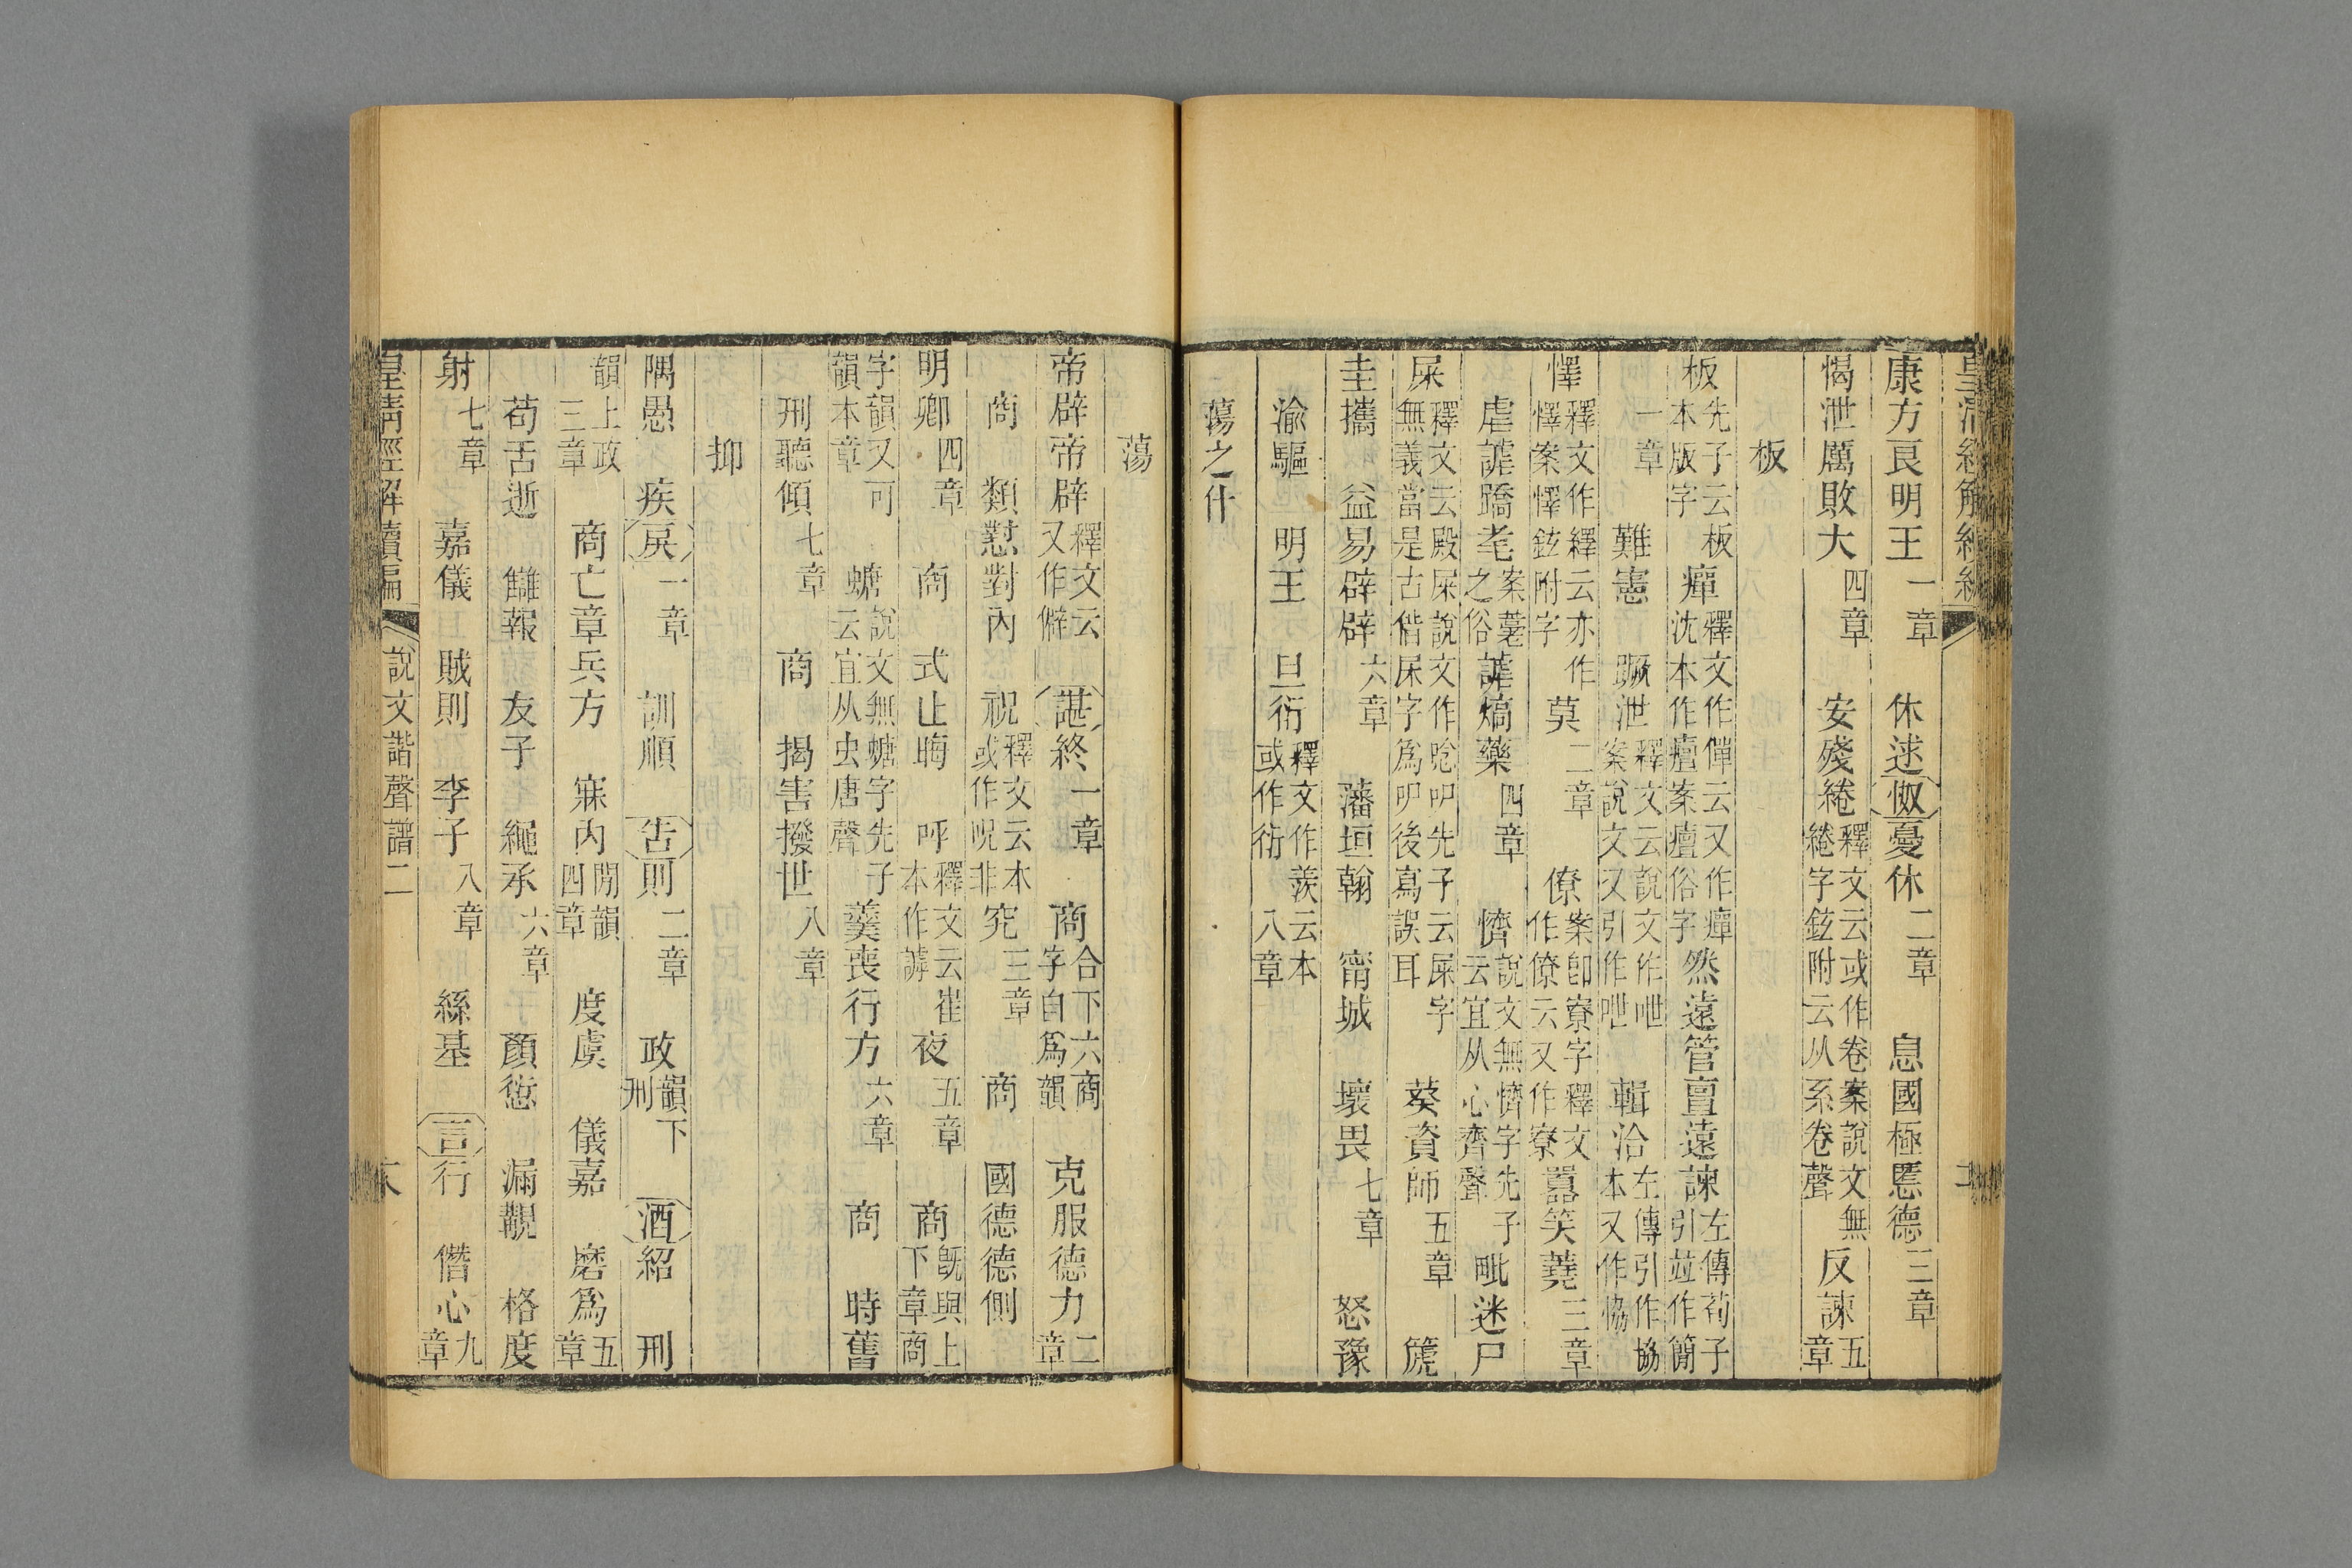 康方良明王一章 休逑怓憂休二章 息國極慝德三章
愒泄厲敗大四章 安殘綣釋文云或作卷案說文無綣字鉉附云从系卷聲 反諫五章
板
板先子云板本版字 癉釋文作僤云又作癉沈本作癉案癉俗字 然遠管亶遠諫左傳荀子引竝作簡
一章 難憲 蹶泄釋文云說文作呭案說文又引作呭 輯洽左傳引作協本又作恊
懌釋文作繹云亦作懌案懌鉉附字 莫二章 僚案卽寮字釋文作僚云又作寮 囂笑蕘三章
虐謔蹻耄案薹之俗 謔熇藥四章 懠說文無懠字先子云宜从心齊聲 毗迷尸
屎釋文云殿屎說文作唸吚先子云屎字無義當是古偕𡱁字爲吚後寫誤耳 葵資師五章 篪
圭攜 益易辟辟六章 藩垣翰 甯城 壞畏七章 怒豫
渝驅 明王 旦衍釋文作羨云本或作衍八章
蕩之什
蕩
帝辟帝辟釋文云又作僻 諶終一章 商合下六商字自爲韻 克服德力二章
商 類懟對內 祝釋文云本或作呪非 究三章 商 國德德側
明卿四章 商 式止晦 呼釋文云崔本作謼 夜五章 商旣與上下章商
字韻又可韻本章 螗說文無螗字先子云宜从虫唐聲 羹喪行方六章 商 時舊
刑聽傾七章 商 揭害撥世八章
抑
隅愚 疾戾一章 訓順 告則二章 政韻下刑 酒紹 刑
韻上政三章 商亡章兵方 寐內閒韻四章 度虞 儀嘉 磨爲五章
苟舌逝 讎報 友子 繩承六章 顏愆 漏覯 格度
射七章 嘉儀 賊則 李子八章 絲基 言行 僭心九章
皇淸經解續編 說文諧聲譜二